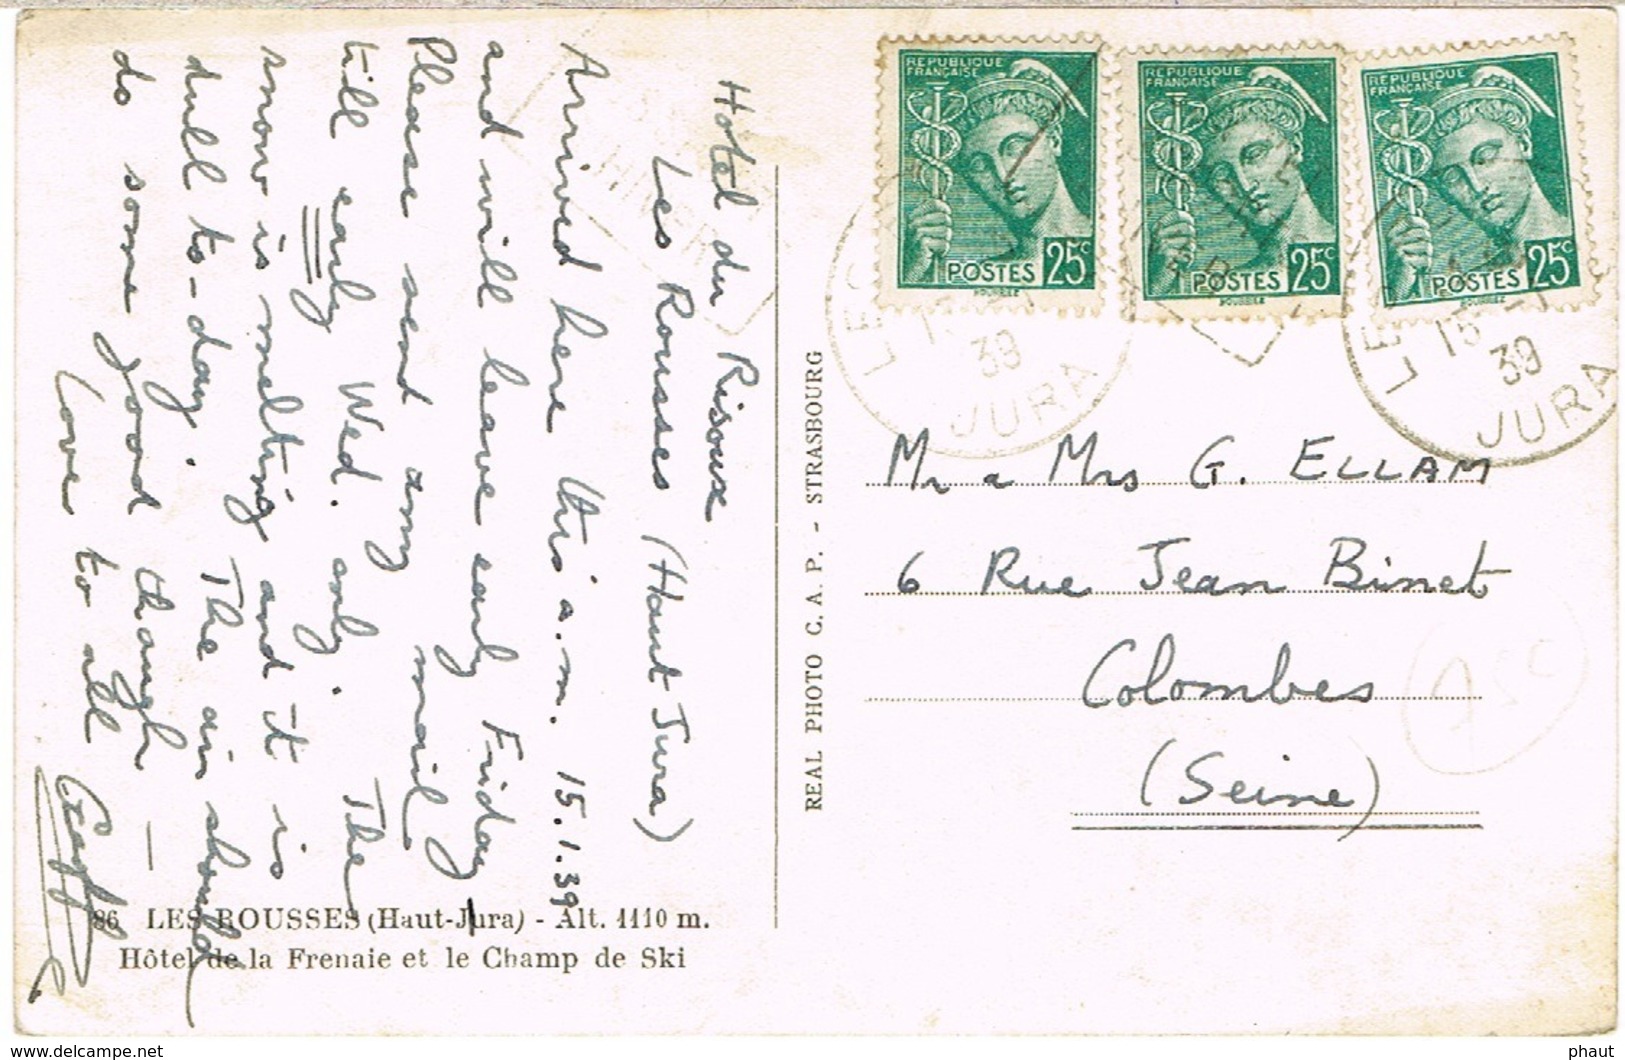 Hotel du Risoux
Les Rousses (Haut Jura)
Arrived here this a.m. 15.1.39
and will leave early Friday
Please send any mail
till early Wed. only. The
snow is melting and it is
dull to-day. The air should
do some good though —
Love to all
86 LES ROUSSES (Haut-Jura) - Alt. 1110 m.
Hôtel de la Frenaie et le Champ de Ski
REAL PHOTO C. A. P. - STRASBOURG
REPUBLIQUE
FRANÇAISE
POSTES 25c
REPUBLIQUE
FRANÇAISE
POSTES 25c
REPUBLIQUE
FRANÇAISE
POSTES 25c
39
JURA
39
JURA
Mr & Mrs G. ELLAM
6 Rue Jean Binet
Colombes
(Seine)
www.delcampe.net
phaut